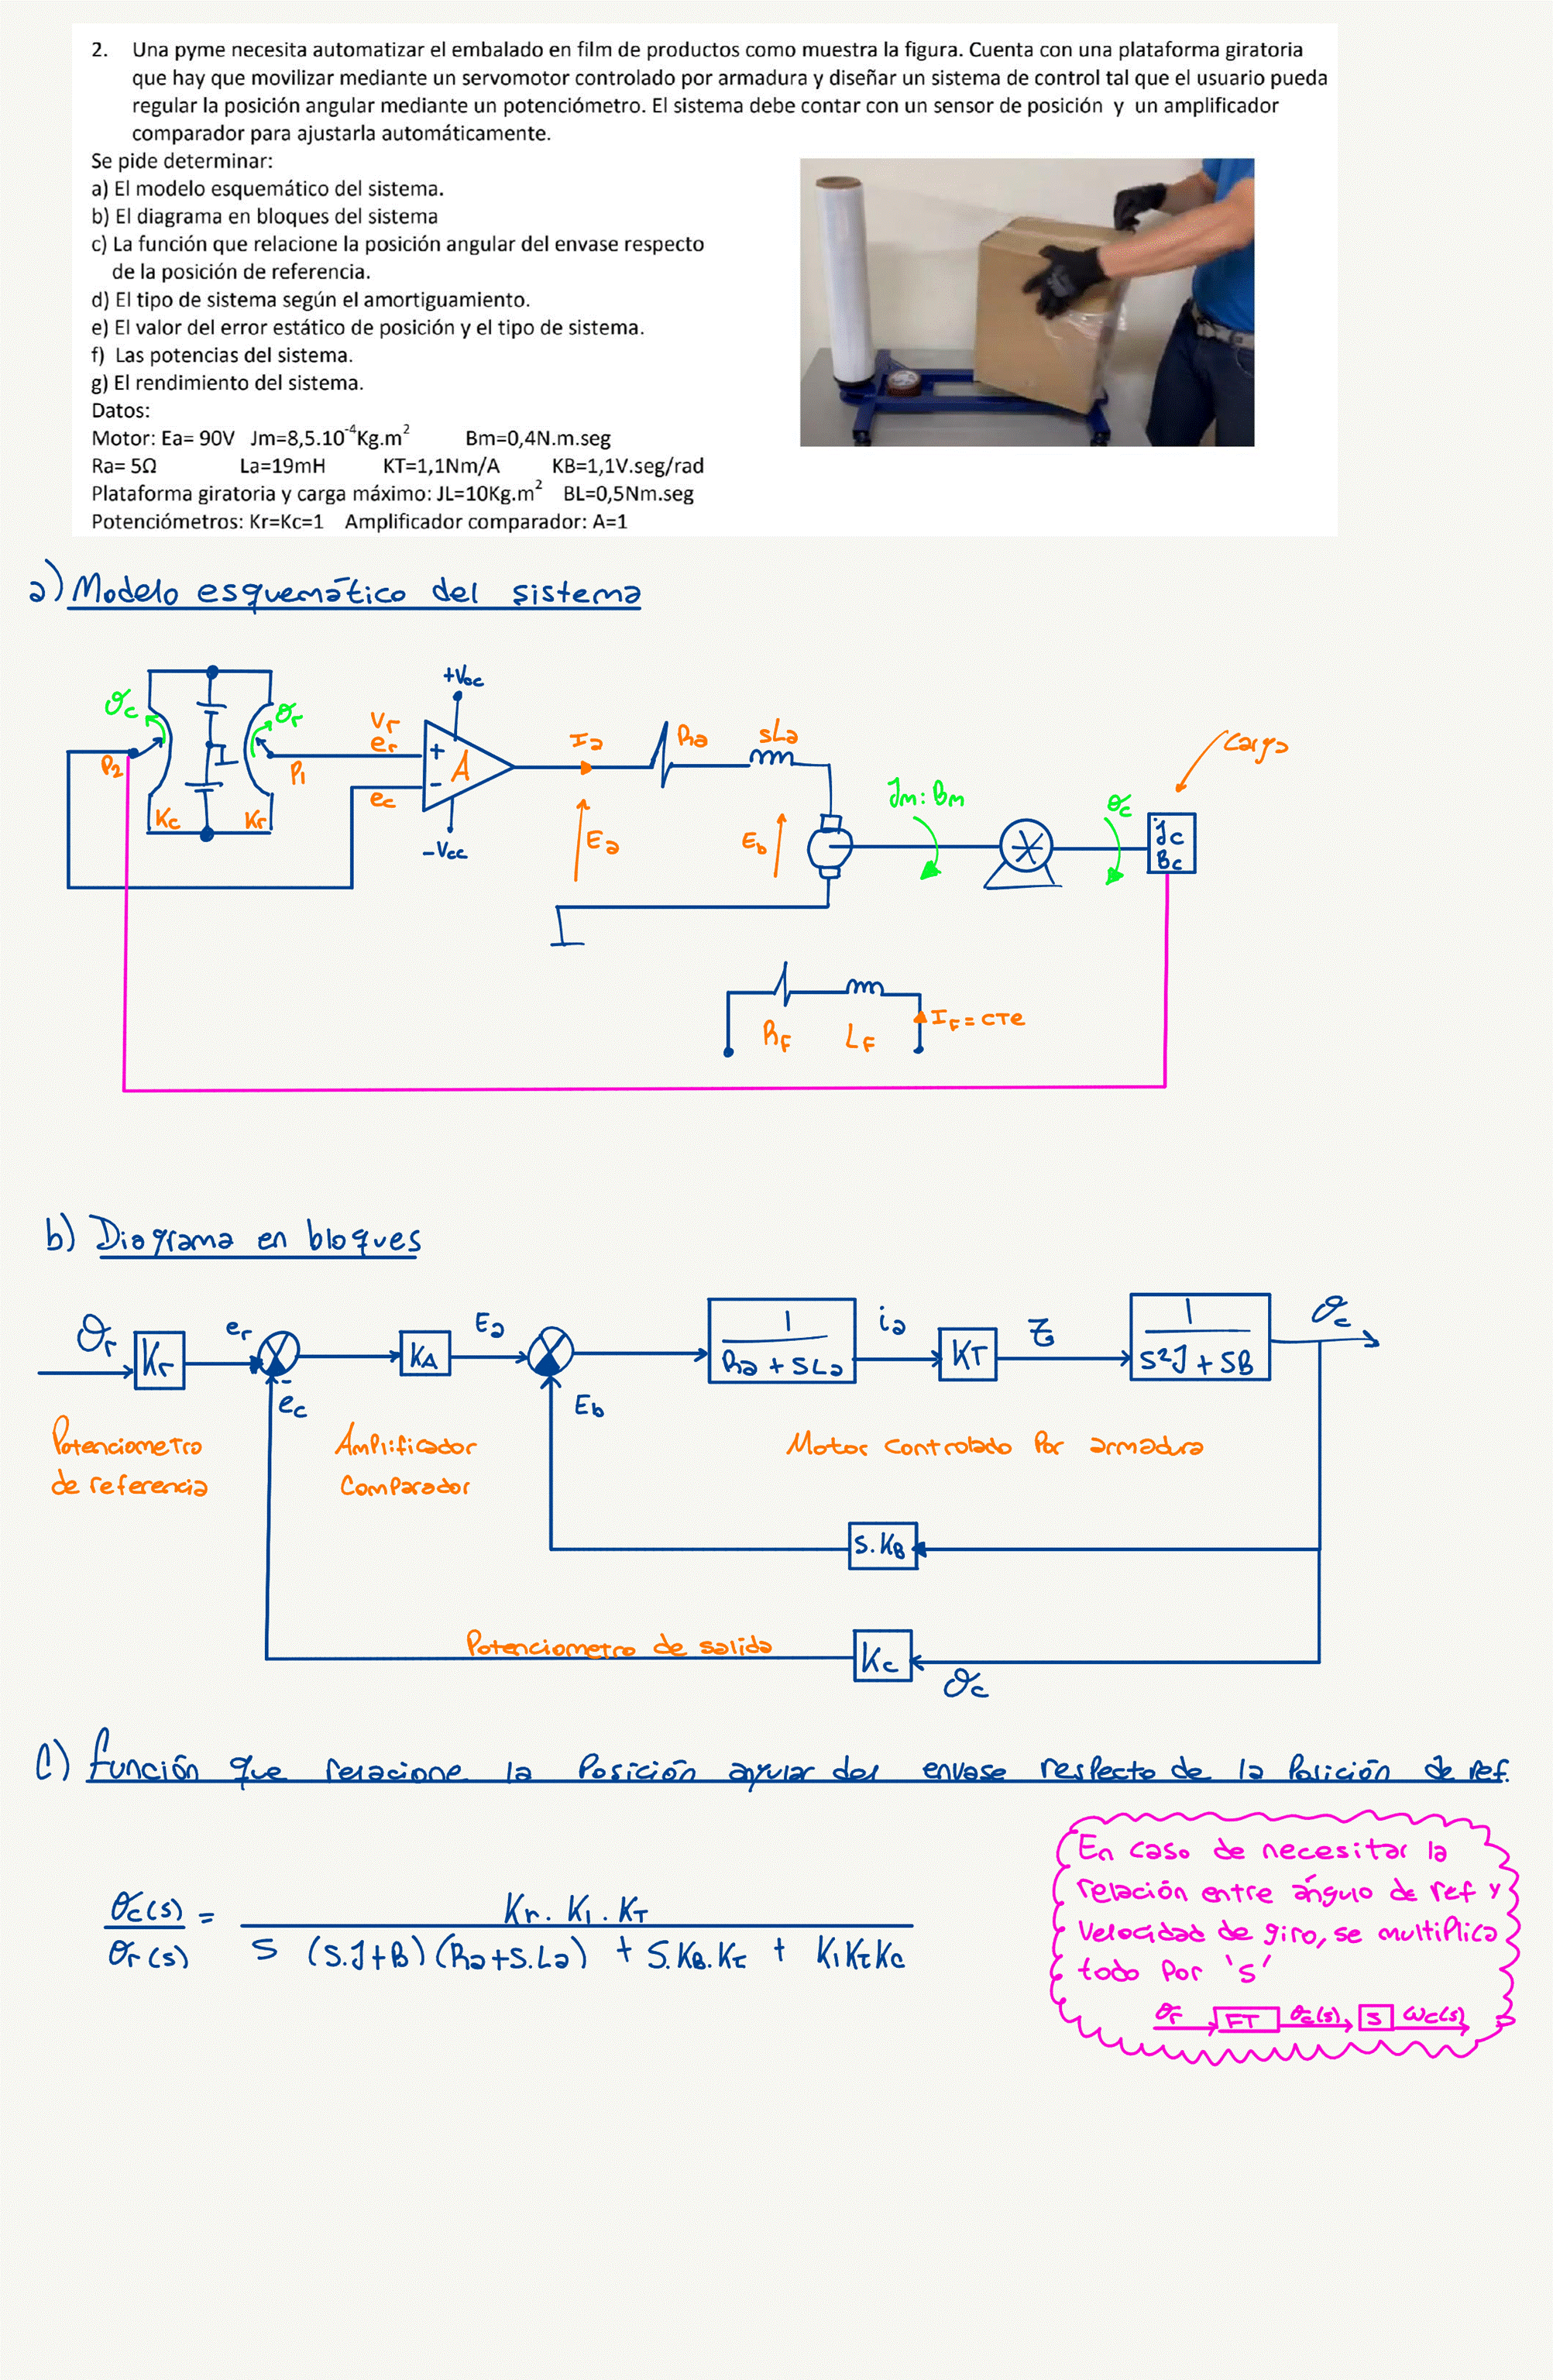 2. Una pyme necesita automatizar el embalado en film de productos como muestra la figura. Cuenta con una plataforma giratoria
que hay que movilizar mediante un servomotor controlado por armadura y diseñar un sistema de control tal que el usuario pueda
regular la posición angular mediante un potenciómetro. El sistema debe contar con un sensor de posición y un amplificador
comparador para ajustarla automáticamente.
Se pide determinar:
a) El modelo esquemático del sistema.
b) El diagrama en bloques del sistema
c) La función que relacione la posición angular del envase respecto
de la posición de referencia.
d) El tipo de sistema según el amortiguamiento.
e) El valor del error estático de posición y el tipo de sistema.
f) Las potencias del sistema.
g) El rendimiento del sistema.
Datos:
Motor: Ea= 90V Jm=8,5.10⁻⁴Kg.m² Bm=0,4N.m.seg
Ra= 5Ω La=19mH KT=1,1Nm/A KB=1,1V.seg/rad
Plataforma giratoria y carga máximo: JL=10Kg.m² BL=0,5Nm.seg
Potenciómetros: Kr=Kc=1 Amplificador comparador: A=1
a) Modelo esquemático del sistema
+Vcc
θc
θr
Vr
er
Ia
Ra
sLa
Carga
P2
P1
+
A
-
ec
Kc
Kr
-Vcc
Ea
Eb
Jm: Bm
θc
Jc
Bc
RF
LF
IF = cte
b) Diagrama en bloques
θr
Kr
er
-
ec
KA
Ea
Eb
1
Ra + SLa
ia
KT
1
S²J + SB
θc
Potenciometro
de referencia
Amplificador
Comparador
Motor controlado Por armadura
S.KB
Potenciometro de salida
Kc
θc
C) función que relacione la Posición angular del envase respecto de la Posición de ref.
θc(s) / θr(s) = Kr. K1. KT / S (S.J+B)(Ra+S.La) + S.KB.KT + K1KTKC
En caso de necesitar la
relación entre ángulo de ref y
Velocidad de giro, se multiplica
todo por 's'
θr FT θc(s) S ωc(s)